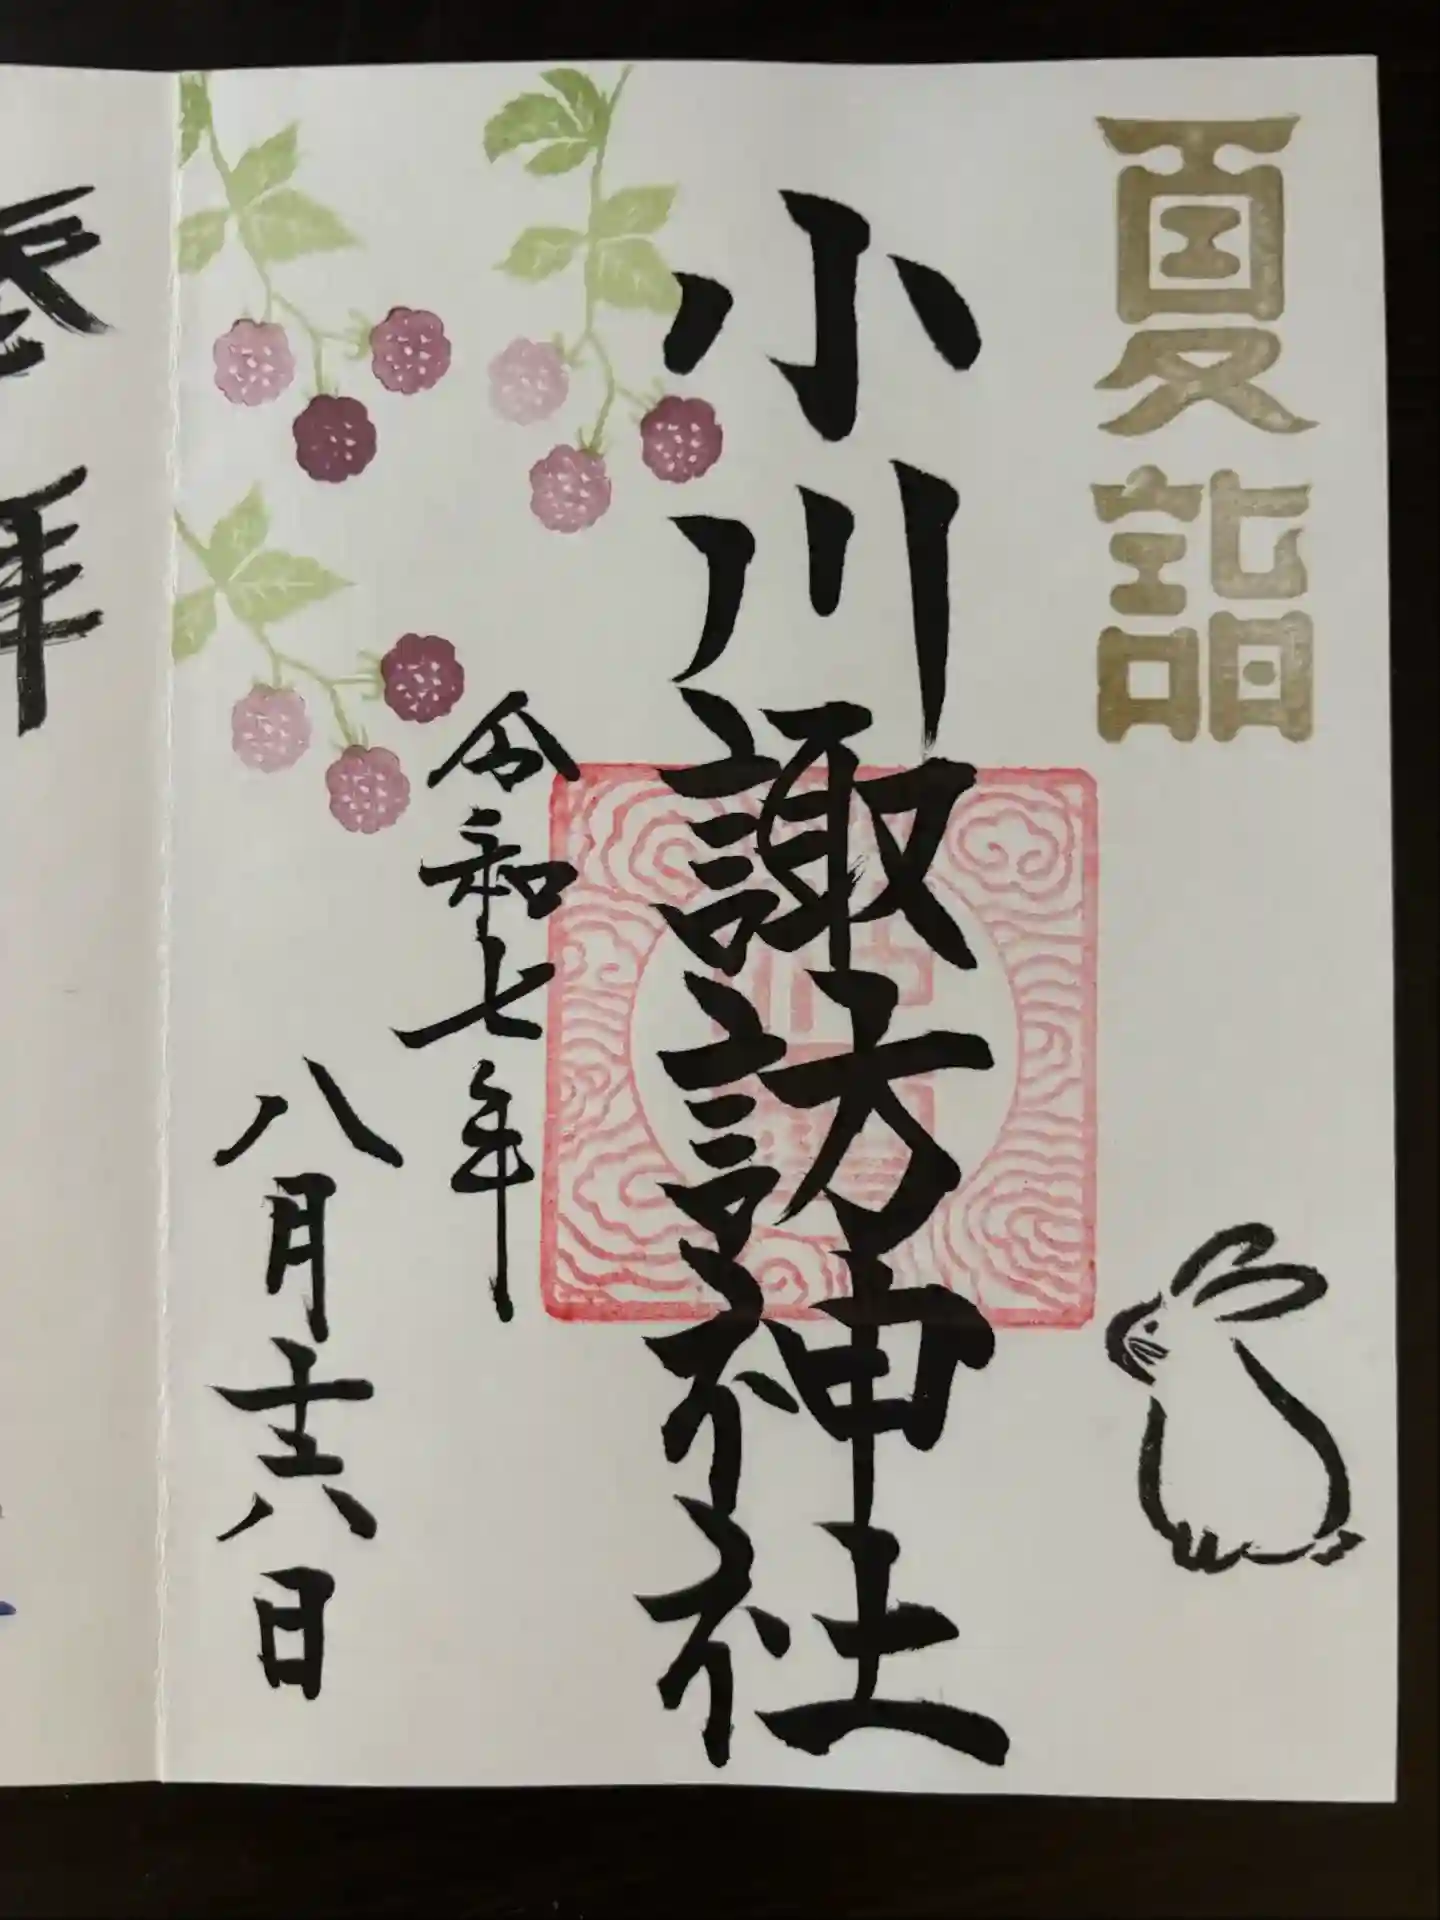 夏詣
小川諏訪神社
令和七年
八月十六日